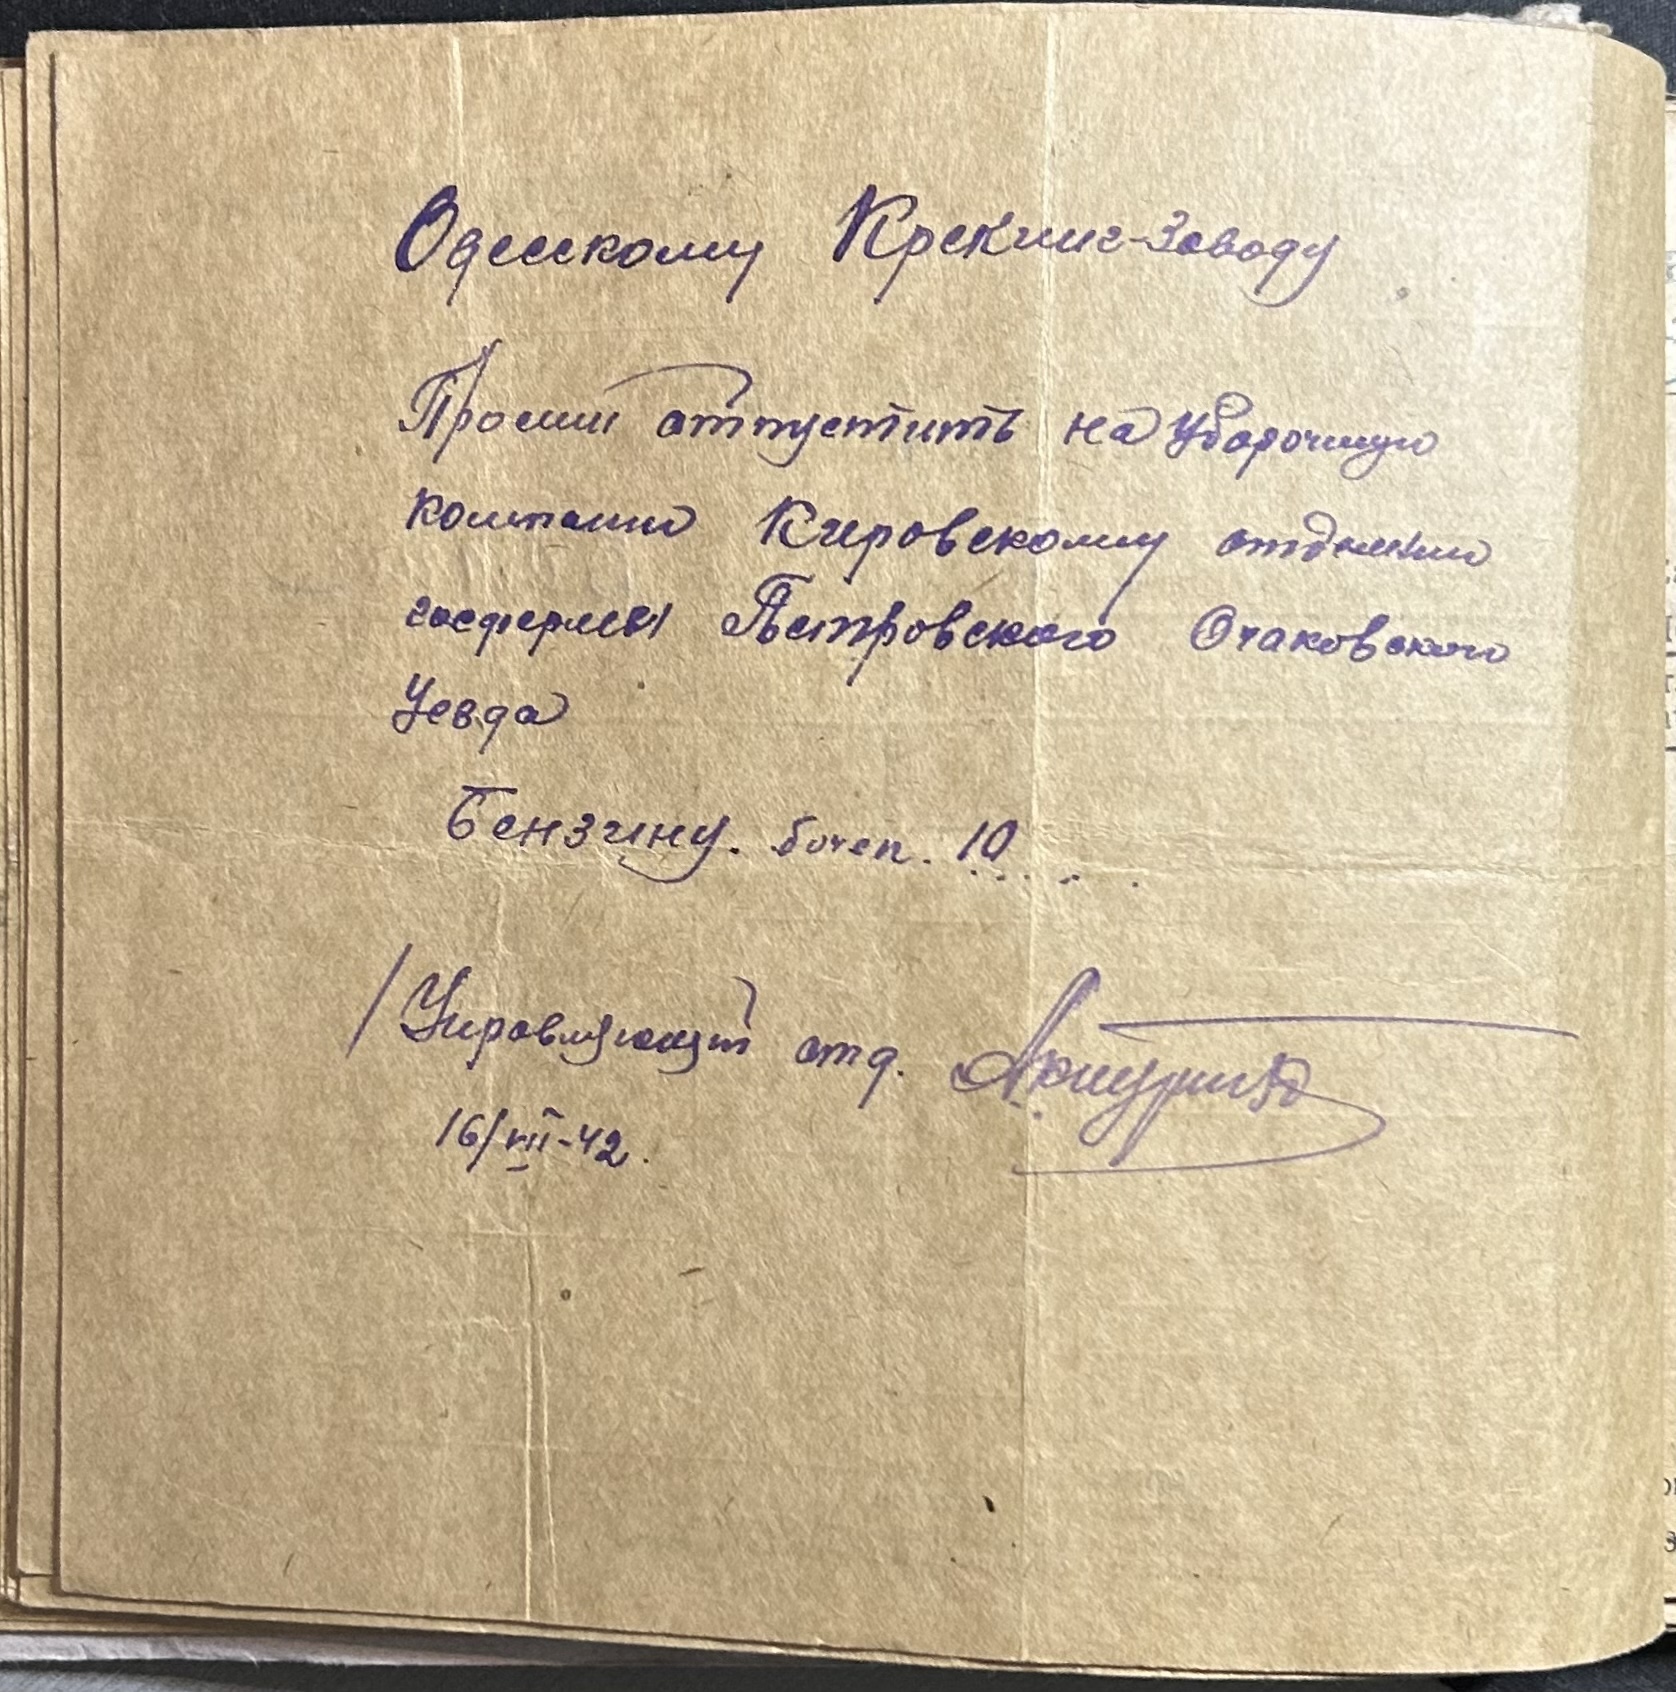 Одесскому Крекинг-Заводу
Просим отпустить на уборочную
компанию Кировскому отделению
госфермы Петровского Очаковского
Уезда
Бензину. бочек. 10....
/Управляющий отд.
16/VII-42.